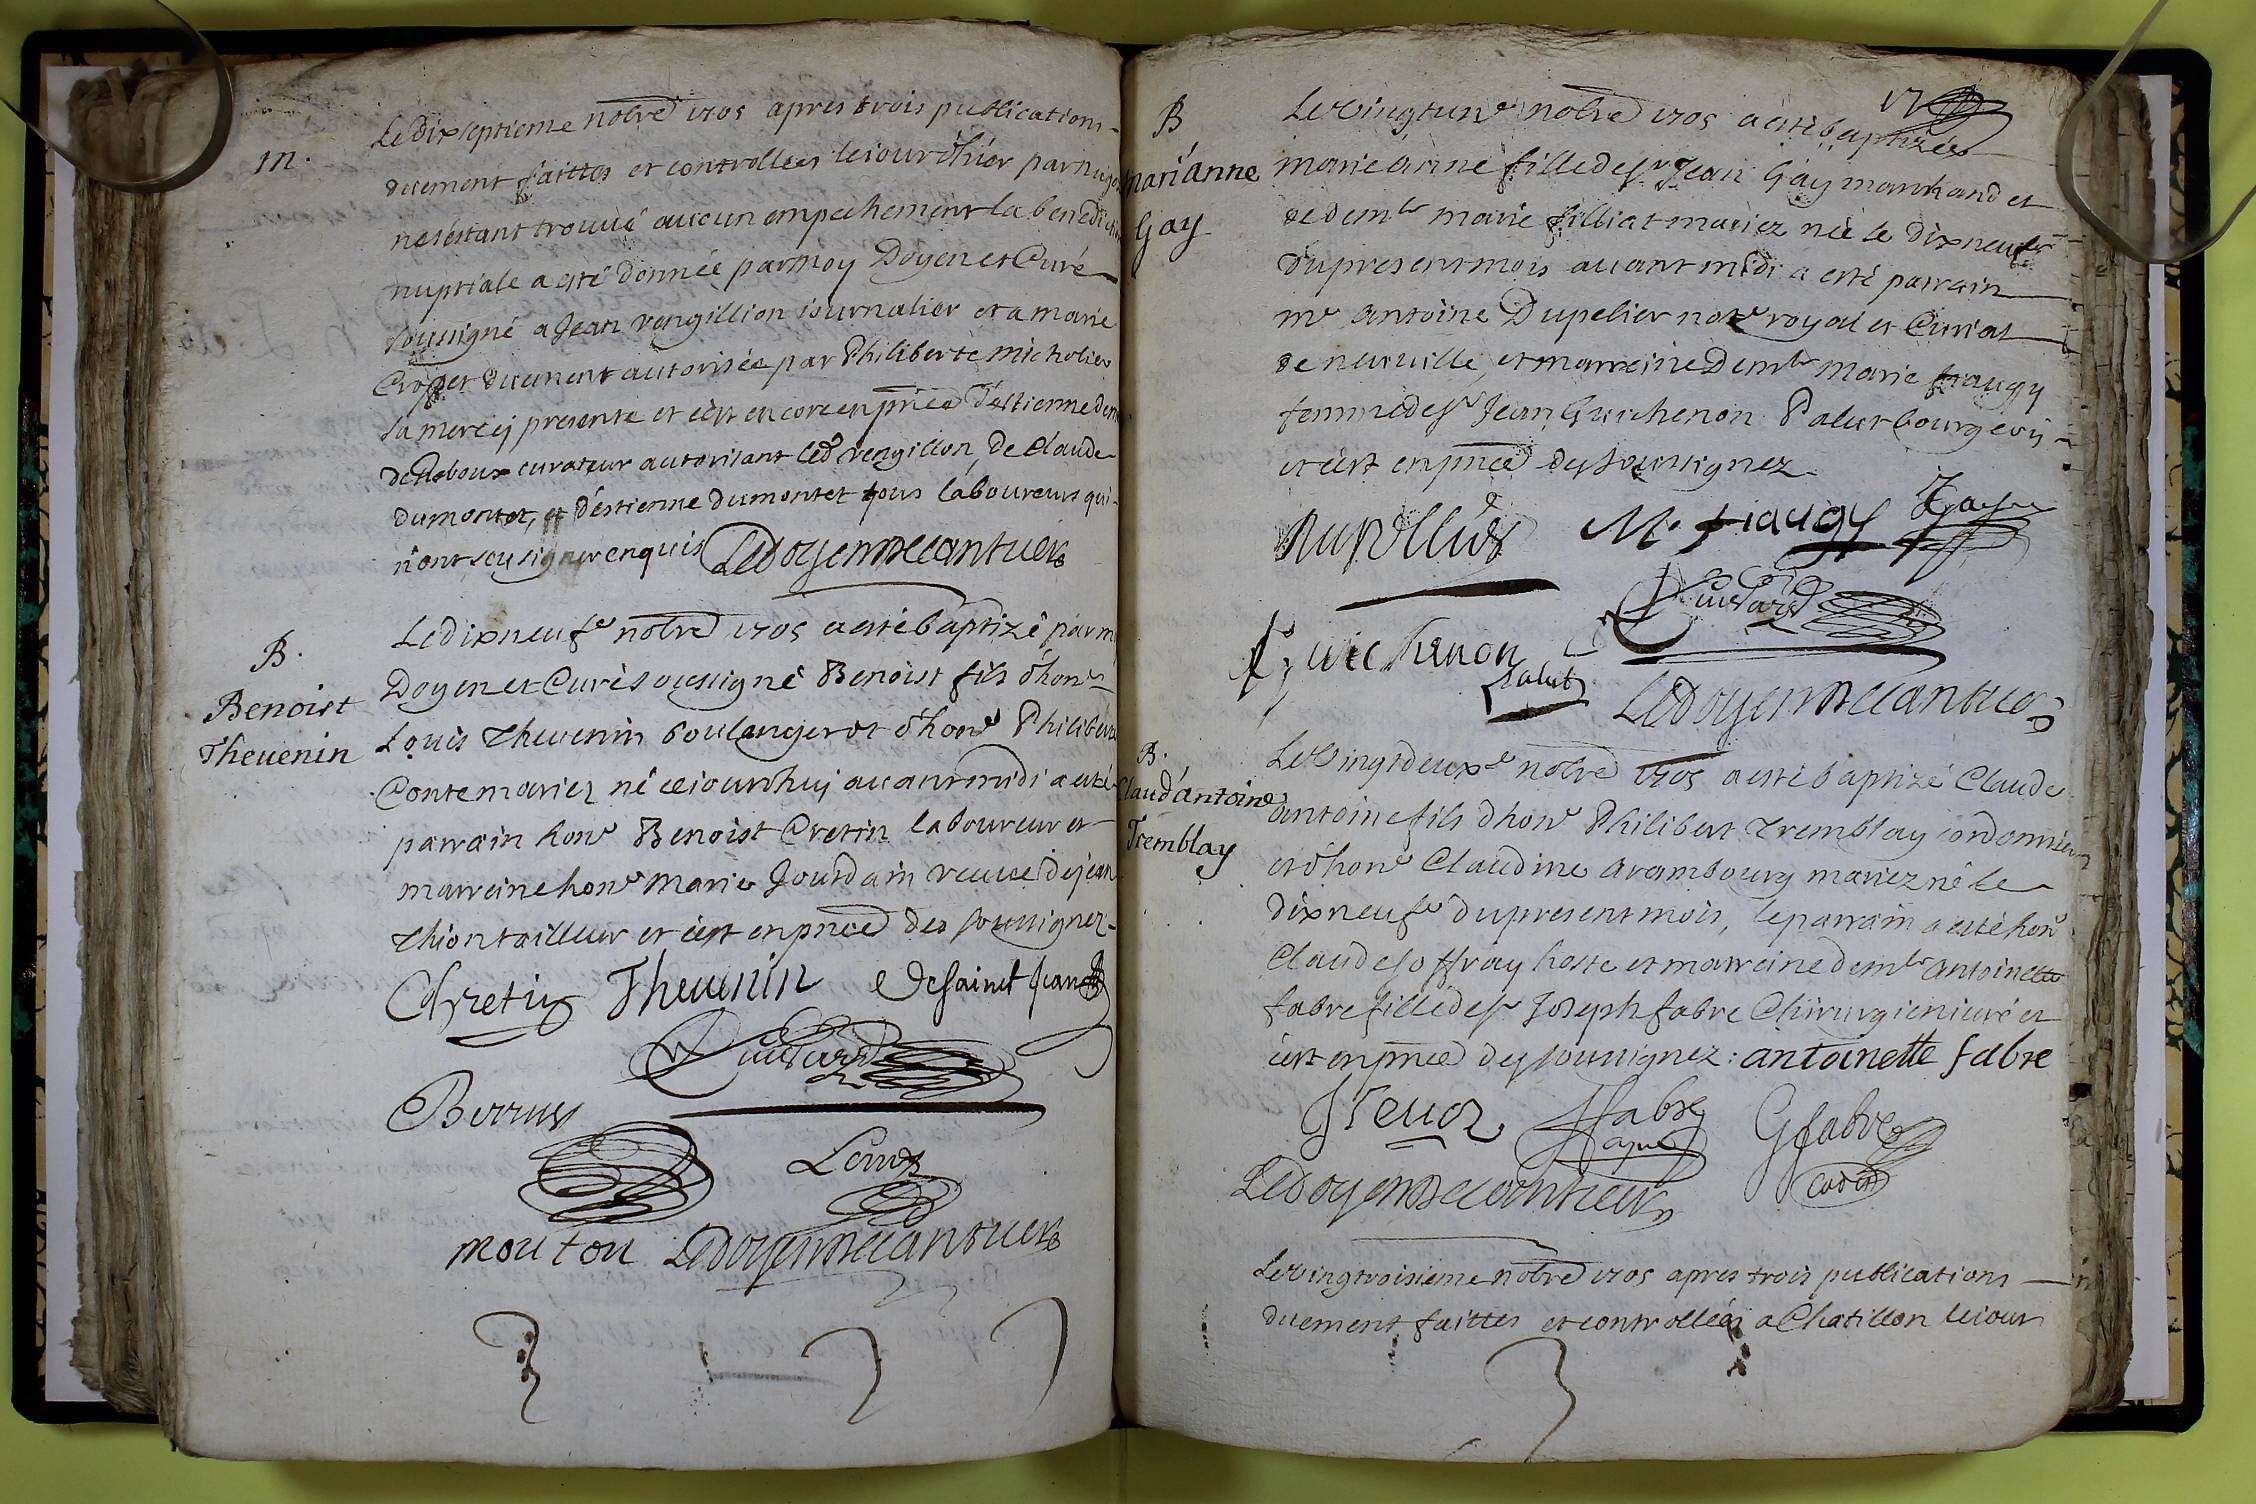 m.
Le dix septieme nobre 1705 apres trois publications
duement faittes et controllees le jour d'hier par
ne s'estant trouvé aucun empechement la benediction
nuptiale a esté donnée par moy Doyen et Curé
soussigné a Jean vengillion journalier et a marie
duement autorisée par Philiberte micholier
sa mere cy presente et c'est encore en pnce d'éstienne
curateur autorisant led vengillon, de Claude
dumontet, et d'éstienne dumontet tous laboureurs qui
n'ont scu signer enquis Ledoyen
B.
Benoist
Thevenin
Le dixneufe nobre 1705 a esté baptizé par m
Doyen et Curé soussigné Benoist fils d'hone
Louis Thevenin boulanger et d'hone Philiberte
Conte mariez né cejourdhuj avant midi a esté
parrain hone Benoist Cretin laboureur et
marreine hone Marie Jourdain veuve de jean
Thion tailleur et c'est en pnce des soussignez
Chretin Thevenin Desainct Jean
Berruer
Louis
mouton Ledoyen
17
B
mari'anne
Gay
Le vingtune nobre 1705 a esté baptizée
marie anne fille de sr Jean Gay marchand et
de demlle marie filliat mariez née le dixneufe
du present mois avant midi a esté parrain
me antoine Dupelier note royal et Curial
de neuville, et marreine Demlle Marie fiaugy
femme de sr Jean Guichenon Palut bourgeois
et c'est en pnce des soussignez
M. fiaugy Gay
Guichenon
Palut
Ledoyen
B.
Claud'antoine
Tremblay
Le vingtdeuxe nobre 1705 a esté baptizé Claude
antoine fils d'hone Philibert Tremblay cordonnier
et d'hone Claudine arambourg mariez né le
dixneufe du present mois, le parrain a esté hone
Claude joffray hoste et marreine demlle antoinette
fabre fille de sr Joseph fabre Chirurgien juré et
c'est en pnce des soussignez : antoinette fabre
fabre
G fabre
cadet
Ledoyen
Le vingtroisieme nobre 1705 apres trois publications
duement faittes et controllées a Chatillon le jour